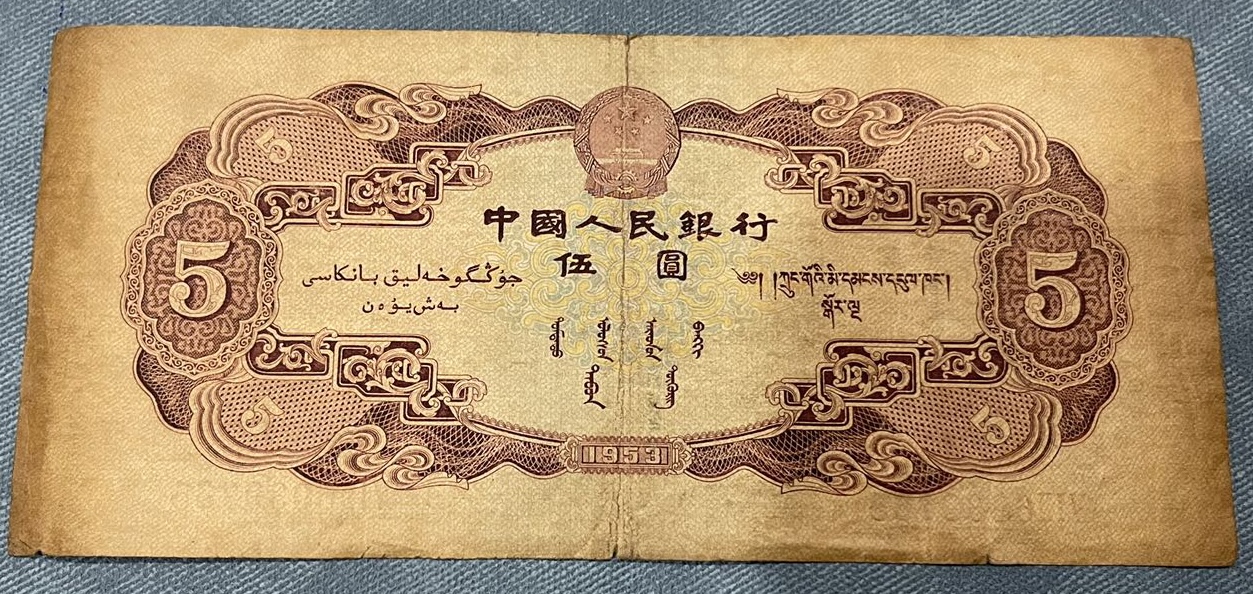 5
5
中國人民銀行
伍 圓
5
جۇڭگو خەلىق بانكاسى
بەش يۇەن
༄༅། །ཀྲུང་གོའི་མི་དམངས་དངུལ་ཁང་།
སྒོར་ལྔ
5
5
5
1953